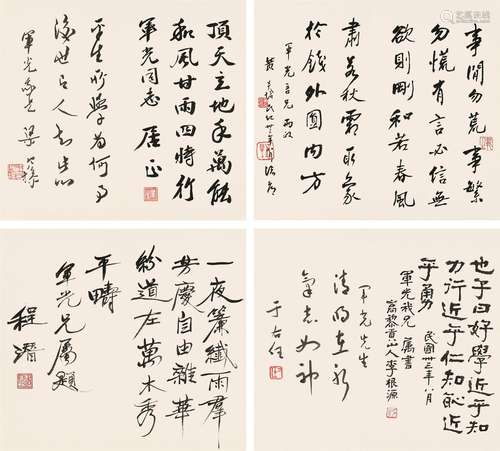 事閒勿荒事繁
勿慌有言必信無
欲則剛和若春風
肅若秋霜取象
於錢外圓内方
軍光吾兄雨政
黃炎培
頂天立地手萬能
和風甘雨四時行
軍光同志 居正
平生所學為何事
後世有人知此心
軍光 梁寒操
也子曰好學近乎知
力行近乎仁知恥近
乎勇 民國卅三年八月
軍光我兄屬書
高黎貢山人李根源
軍光先生
清明在躬
氣志如神
于右任
一夜簾纖雨群
芳慶自由雜華
紛道左萬木秀
平疇
軍光兄屬題
程潛